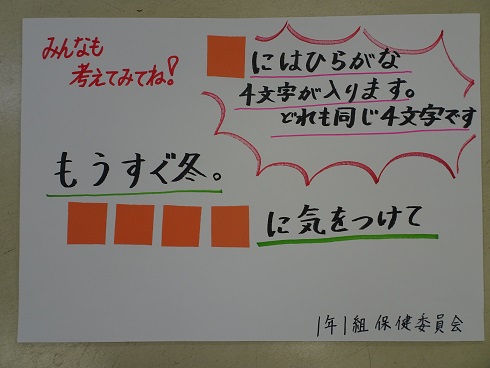 みんなも
考えてみてね!
にはひらがな
4文字が入ります。
どれも同じ4文字です
もうすぐ冬。
に気をつけて
1年1組保健委員会